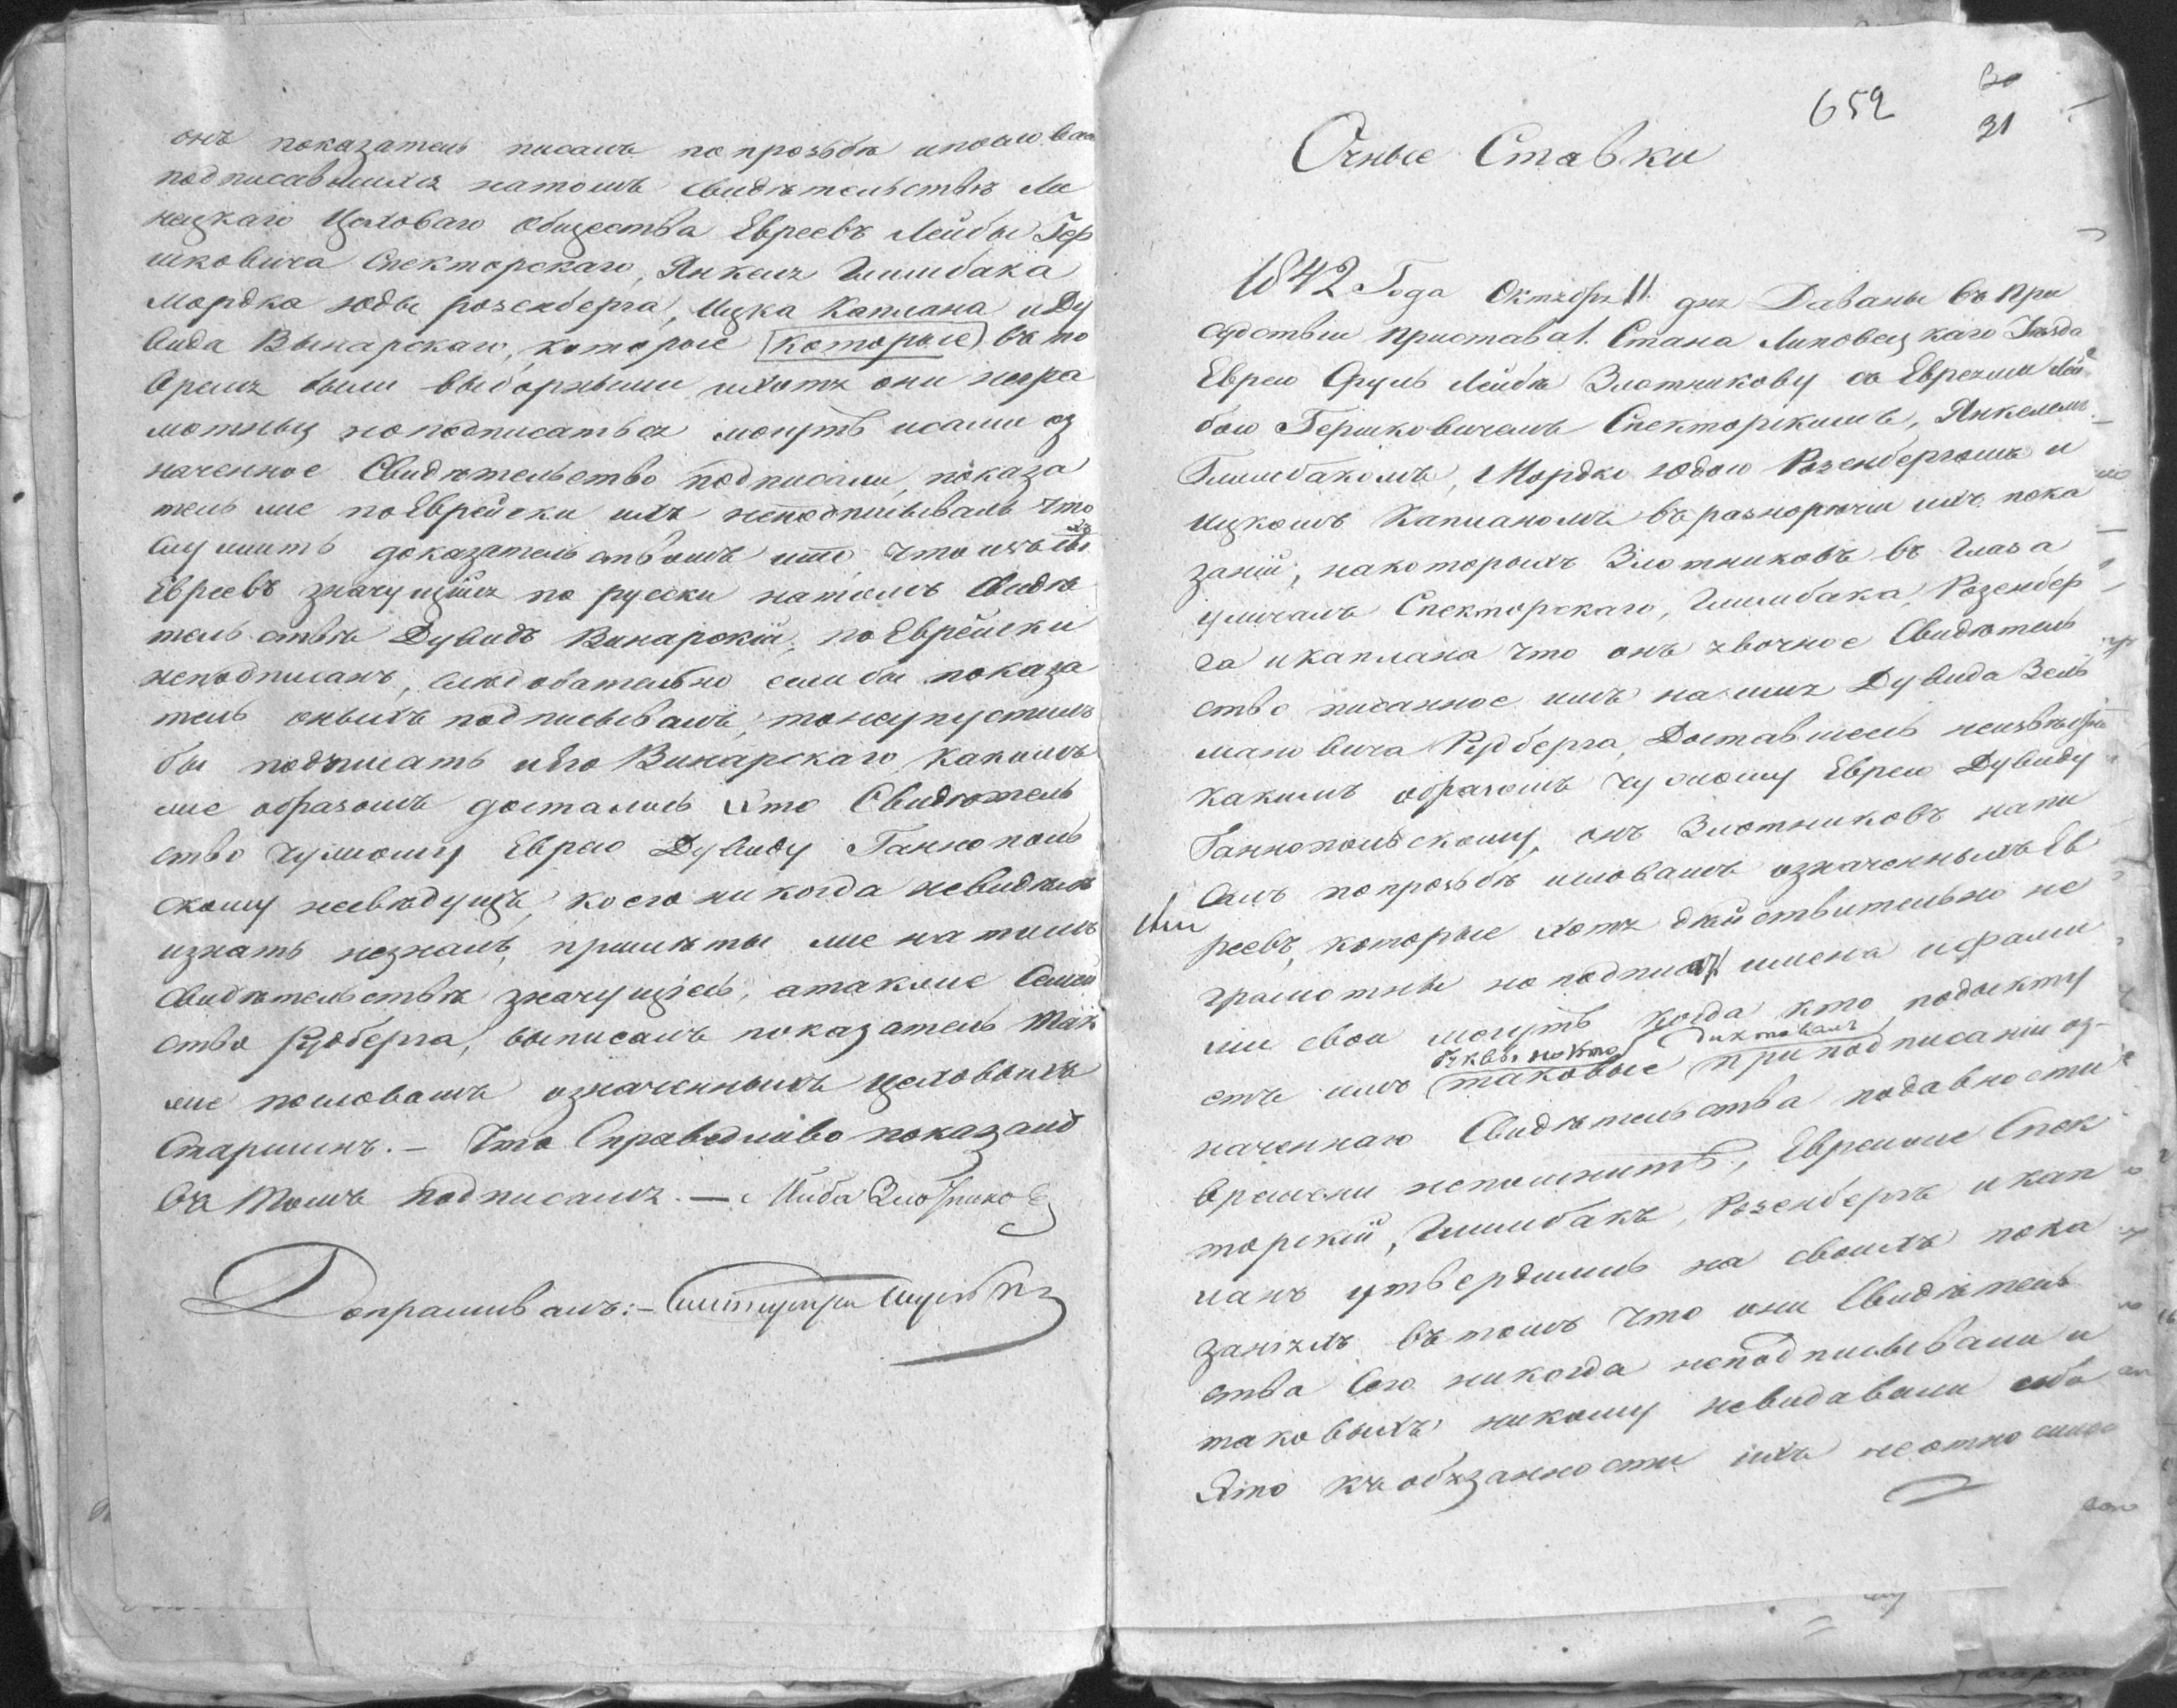 онъ показатель писалъ попрозьбѣ ипожеловаю
подписавшихся натомъ свидѣтельствѣ Ли
нецкаго Цеховаго общества Евреевъ Лейбы Гер
шковича Спекторскаго, Янкеля Глимбака
Мордка юды розенберга, Ицка Каплана иДу
вида Винарскаго, которые (которые) въ то
время были выборными ихотя они негра
мотны ноподписаться могутъ исами оз
наченное Свидѣтельство подписали, показа
тель же по Еврейски ихъ неподписывалъ что
служитъ доказательствомъ ито, что изъ
Евреевъ значущійся по русски натомъ Свидѣ
тельствѣ Дувидъ Винарскій, по Еврейски
неподписанъ, слѣдовательно еслибы показа
тель оныхъ подписывалъ, тонеупустилъ
бы подписать иего Винарскаго, какимъ
же образомъ досталось Это Свидѣтель
ство чужому Еврею Дувиду Ганнополь
скому невѣдущъ, коего никогда невидѣлъ
изнать незналъ, примѣты же на томъ
свидѣтельствѣ значущіесь, атакже Семей
ство Рудберга, выписалъ показатель так
же пословамъ означенныхъ цеховыхъ
Старшинъ. – Что Справедливо показалъ
въ томъ подписался. — Лейба Злотников
Допрашивалъ: –
652
30
31
Очные Ставки
1842 Года Октября 11. дня Даваны въ при
судствіи пристава 1. Стана Липовецкаго Уѣзда
Еврею Сруль Лейбѣ Злотникову съ Евреями Лей
бою Гершковичемъ Спекторскимъ, Янкелемъ
Глимбакомъ, Мордко юдою Розенбергомъ и
Ицкомъ Капланомъ въ разнорѣчіи ихъ пока
заній, накоторыхъ Злотниковъ въ глаза
уличалъ Спекторскаго, Глимбака, Розенбер
га икаплана что онъ явочное Свидѣтель
ство писанное имъ на имя Дувида Зель
мановича Рудберга, Доставшееся неизвѣстно
какимъ образомъ чужому Еврею Дувиду
Ганнопольскому, онъ Злотниковъ напи
салъ попрозьбѣ исловамъ означенныхъ Ев
реевъ, которые хотя дѣйствительно не
грамотны но подписать имена ифами
ліи свои могутъ когда кто подиктy
етъ имъ (таковые при подписаніи оз-
буквы. нокто диктовалъ
наченнаго Свидѣтельства подавности
времени непомнитъ, Евреиже Спек
торскій, Глимбакъ, Розенбергъ икап
ланъ утвердились на своихъ пока
заніяхъ въ томъ что они Свидѣтель
ства Сего никогда неподписывали и
таковыхъ никому невидавали ибо
Это къ обязанности ихъ неотносилось